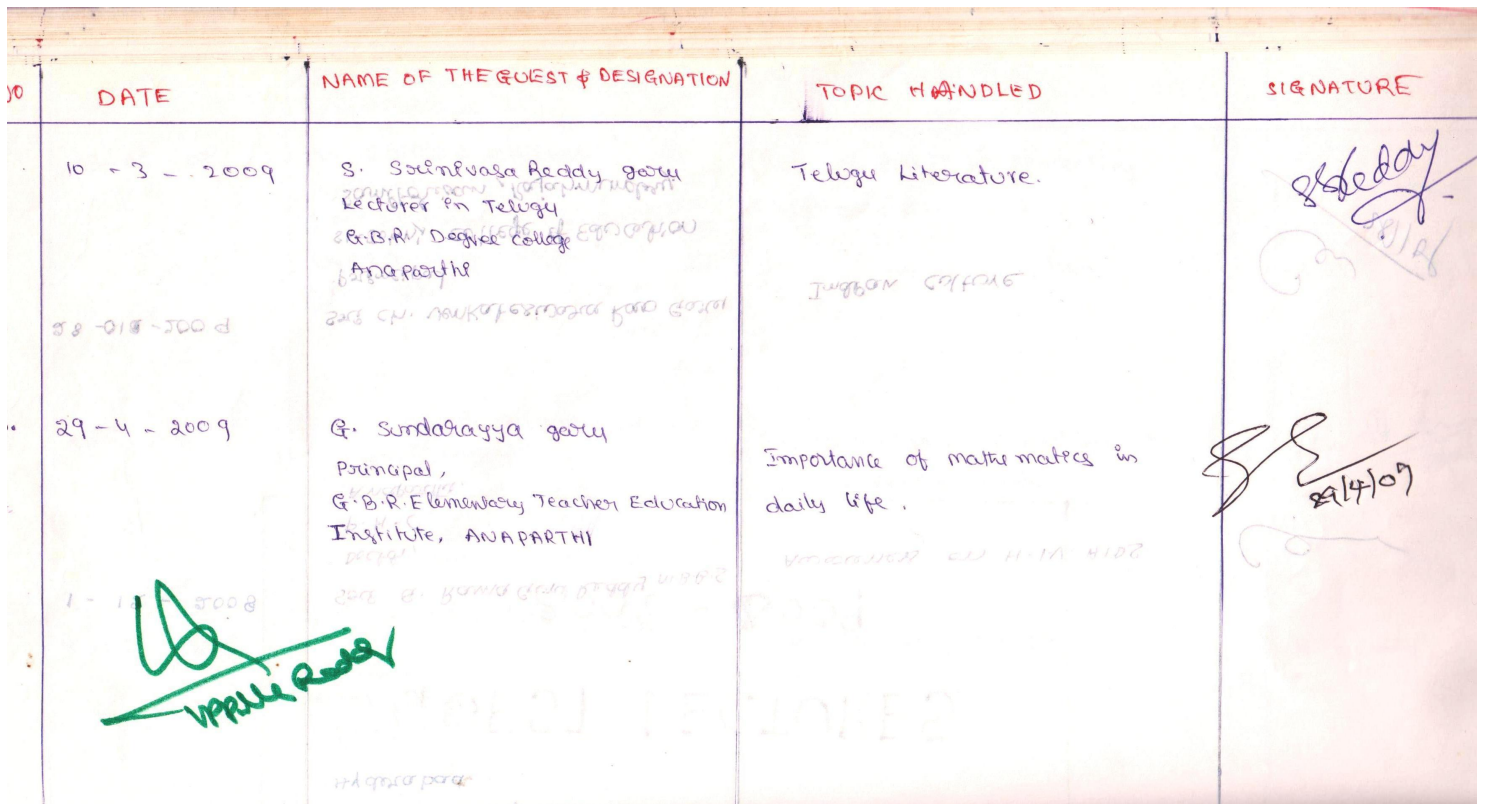 DATE
NAME OF THE GUEST & DESIGNATION
TOPIC HANDLED
SIGNATURE
10 - 3 - 2009
S. Srinivasa Reddy garu
Lecturer in Telugu
G.B.R. Degree College
Anaparthi
Telugu Literature.
SSReddy
29 - 4 - 2009
G. Sundarayya garu
Principal,
G.B.R. Elementary Teacher Education
Institute, ANAPARTHI
Importance of mathematics in
daily life.
29/4/09
Reddy